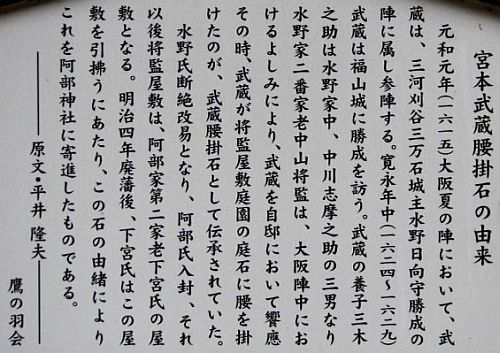 宮本武蔵腰掛石の由来
元和元年(一六一五)大阪夏の陣において、武
蔵は、三河刈谷三万石城主水野日向守勝成の
陣に属し参陣する。寛永年中(一六二四~一六二九)
武蔵は福山城に勝成を訪う。武蔵の養子三木
之助は水野家中、中川志摩之助の三男なり
水野家二番家老中山将監は、大阪陣中にお
けるよしみにより、武蔵を自邸において饗應
その時、武蔵が将監屋敷庭園の庭石に腰を掛
けたのが、武蔵腰掛石として伝承されていた。
水野氏断絶改易となり、阿部氏入封、それ
以後将監屋敷は、阿部家第二家老下宮氏の屋
敷となる。明治四年廃藩後、下宮氏はこの屋
敷を引拂うにあたり、この石の由緒により
これを阿部神社に寄進したものである。
原文・平井 隆夫
鷹の羽会